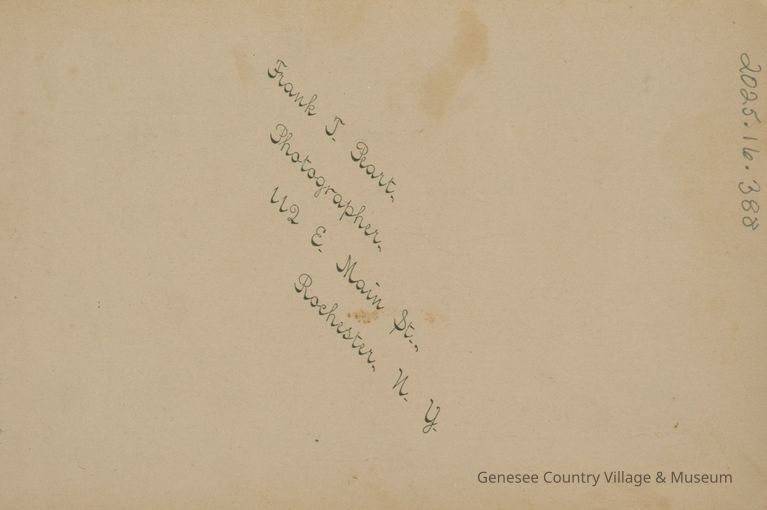 Frank T. Peart.
Photographer.
112 E. Main St..
Rochester. N. Y.
2025.16.388
Genesee Country Village & Museum